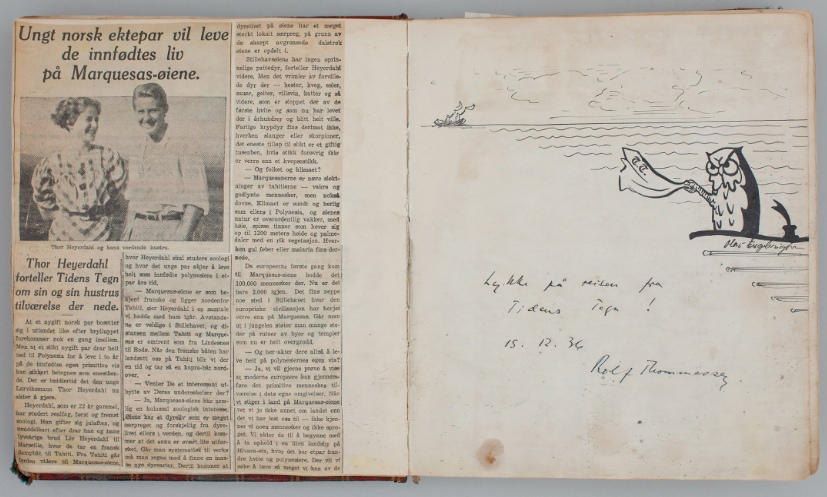 Ungt norsk ektepar vil leve
de innfødtes liv
på Marquesas-øiene.
Thor Heyerdahl og hans vordende hustru.
Thor Heyerdahl
forteller Tidens Tegn
om sin og sin hustrus
tilværelse der nede.
At et nygift norsk par bosetter
sig i utlandet like efter bryllupet
forekommer nok en gang imellem.
Men at et slikt ungt par drar helt
ned til Polynesia for å leve i to år
på de innfødtes egen primitive vis
kan sikkert betegnes som enestående.
Det er imidlertid det den unge
Larviksmann Thor Heyerdahl nu
akter å gjøre.
Heyerdahl, som er 22 år gammel,
har studert realfag, først og fremst
zoologi. Han gifter sig julaften, og
umiddelbart efter drar han og hans
brud Liv Heyerdahl til
Marseille, hvor de tar en fransk
til Tahiti. Fra Tahiti går
ferden videre til Marquesasøiene,
hvor Heyerdahl skal studere zoologi
og hvor det unge par akter å leve
helt som innfødte polynesiere i et
par års tid.
— Marquesasøiene er som be-
kjent franske og ligger nordenfor
Tahiti, sier Heyerdahl i en samtale
vi hadde med ham igår. Avstande-
ne er veldige i Stillehavet, og di-
stansen mellem Tahiti og Marque-
sas er omtrent som fra Lindesnes
til Bodø. Når den franske båten har
landsatt oss på Tahiti blir vi der
en tid og tar så en kopra-båt nord-
over.
— Venter De et interessant ut-
bytte av Deres undersøkelser der?
— Ja, Marquesas-øiene har nem-
lig en kolossal zoologisk interesse.
Øiene har et dyreliv som er meget
særpreget og forskjellig fra dyre-
livet ellers i verden, og dertil kom-
mer at det ennu er svært lite utfor-
sket. Går man systematisk til verks
må man regne med å finne en man-
ge nye dyrearter. Dertil kommer at
dyrelivet på øiene har et meget
sterkt lokalt særpreg, på grunn av
de skarpt avgrensede dalstrøk
øiene er opdelt i.
Stillehavsøiene har ingen oprin-
nelige pattedyr, forteller Heyerdahl
videre. Men det vrimler av forville-
de dyr der — hester, kveg, esler,
sauer, geiter, villsvin, katter og så
videre, som er sloppet der av de
første hvite og som nu har levet
der i århundrer og blitt helt ville.
Farlige krypdyr fins derimot ikke,
hverken slanger eller skorpioner,
det eneste tillap til slikt er et giftig
tusenben, hvis stikk forøvrig ikke
er verre enn et kvepsestikk.
— Og folket og klimaet?
— Marquesanerne er nære slekt-
ninger av tahitierne — vakre og
godlynte mennesker, som nokså
dovne. Klimaet er sundt og herlig
som ellers i Polynesia, og øienes
natur er overordentlig vakker, med
høie, spisse tinner som hever sig
op til 1200 meters høide og palme-
daler med en rik vegetasjon. Hver-
ken gul feber eller malaria fins der-
nede.
Da europeerne første gang kom
til Marquesas-øiene bodde det
100.000 mennesker der. Nu er det
bare 2.000 igjen. Det fins neppe
noe sted i Stillehavet hvor den
europeiske civilisasjon har herjet
verre enn på Marquesas. Går man
ut i jungelen støter man mange ste-
der på ruiner av byer og templer
som nu er helt overgrodd.
— Og her akter dere altså å le-
ve helt på polynesiernes egen vis?
— Ja, vi vil gjerne prøve å vise
at moderne europeere kan gjennem-
føre det primitive menneskes til-
værelse i dets egne omgivelser. Når
vi stiger i land på Marquesas-øiene
vet vi jo ikke annet om landet enn
det vi har lest oss til — ikke kjen-
ner vi noen mennesker og ikke språ-
get. Vi akter da til å begynne med
å ta ophold i en liten landsby på
Hivaoa-øia, hvor det bor et par hun-
dre hvite og polynesiere. Der vil vi
søke å lære så meget vi kan av de
T.T.
Olaf Engebretsen
Lykke på reisen fra
Tidens Tegn !
15. 12. 36
Rolf Thommessen.